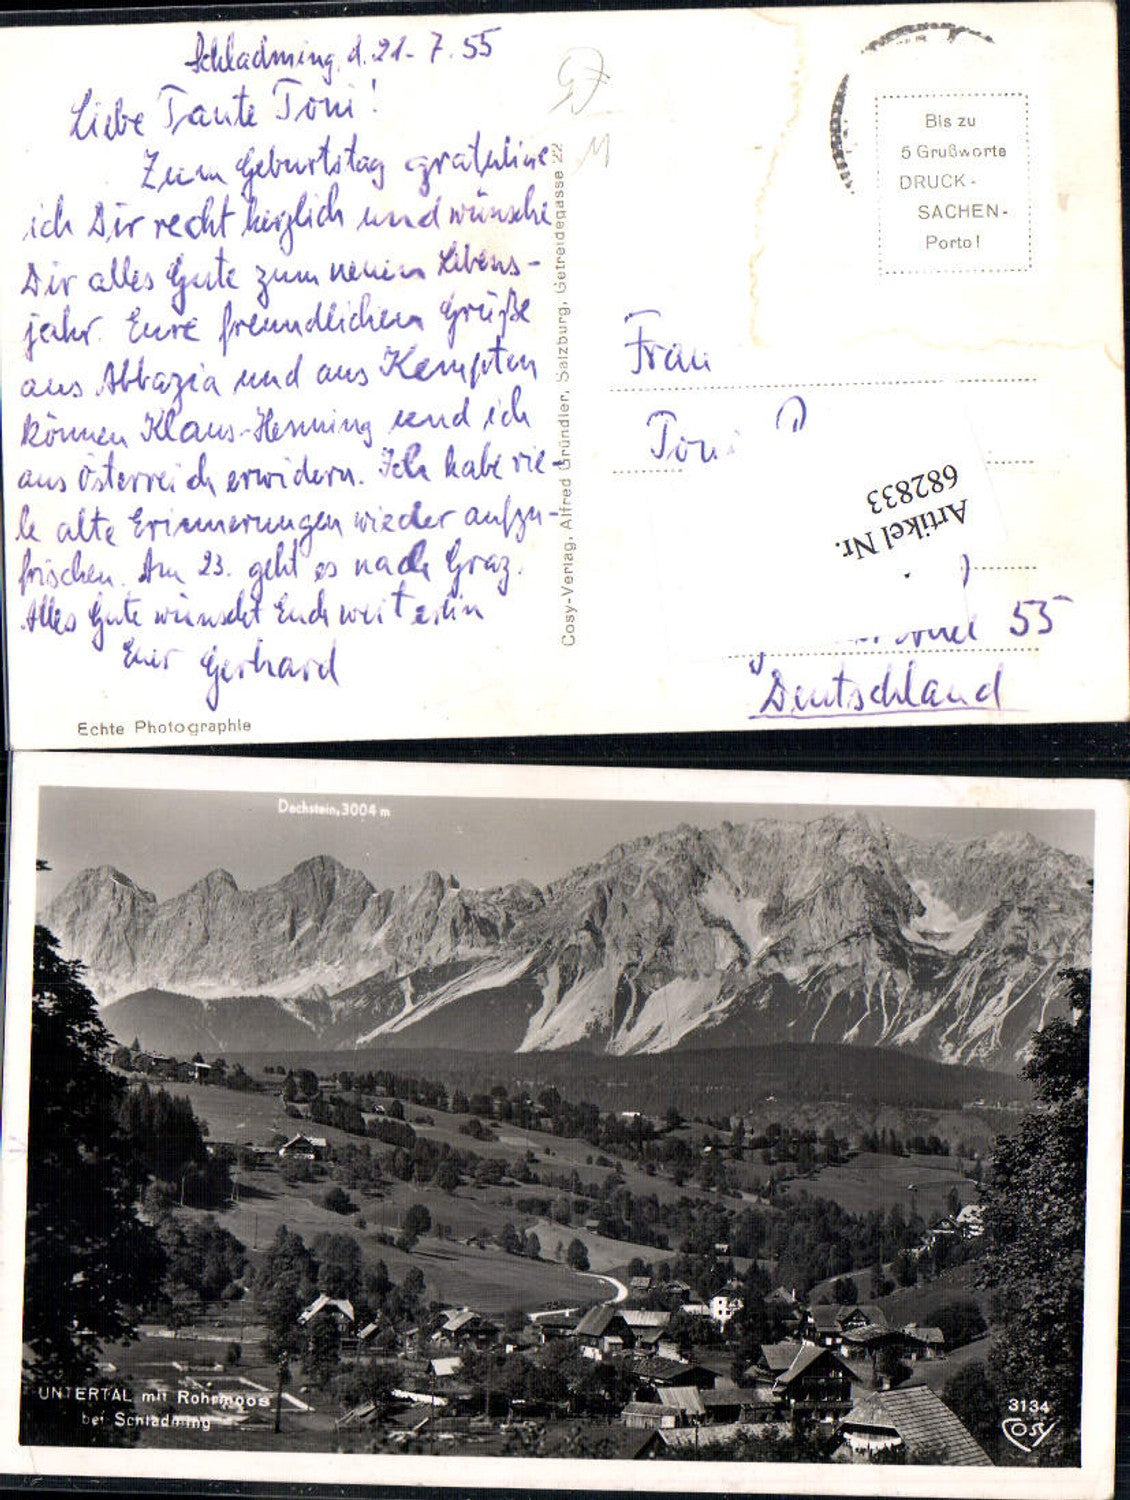 Schladming, d. 21. 7. 55
Liebe Tante Toni!
Zum Geburtstag gratuliere
ich Dir recht herzlich und wünsche
Dir alles Gute zum neuen Lebens-
jahr. Eure freundlichen Grüße
aus Abbazia und aus Kempten
können Klaus-Henning und ich
aus Österreich erwidern. Ich habe vie-
le alte Erinnerungen wieder aufzu-
frischen. Am 23. geht es nach Graz.
Alles Gute wünscht Euch weiterhin
Euer Gerhard
Echte Photographie
Cosy-Verlag, Alfred Gründler, Salzburg, Getreidegasse 22
Bis zu
5 Grußworte
DRUCK-
SACHEN-
Porto!
Frau
Toni
Artikel Nr.
682833
55
Deutschland
Dachstein, 3004 m
UNTERTAL mit Rohrmoos
bei Schladming
3134
COSY